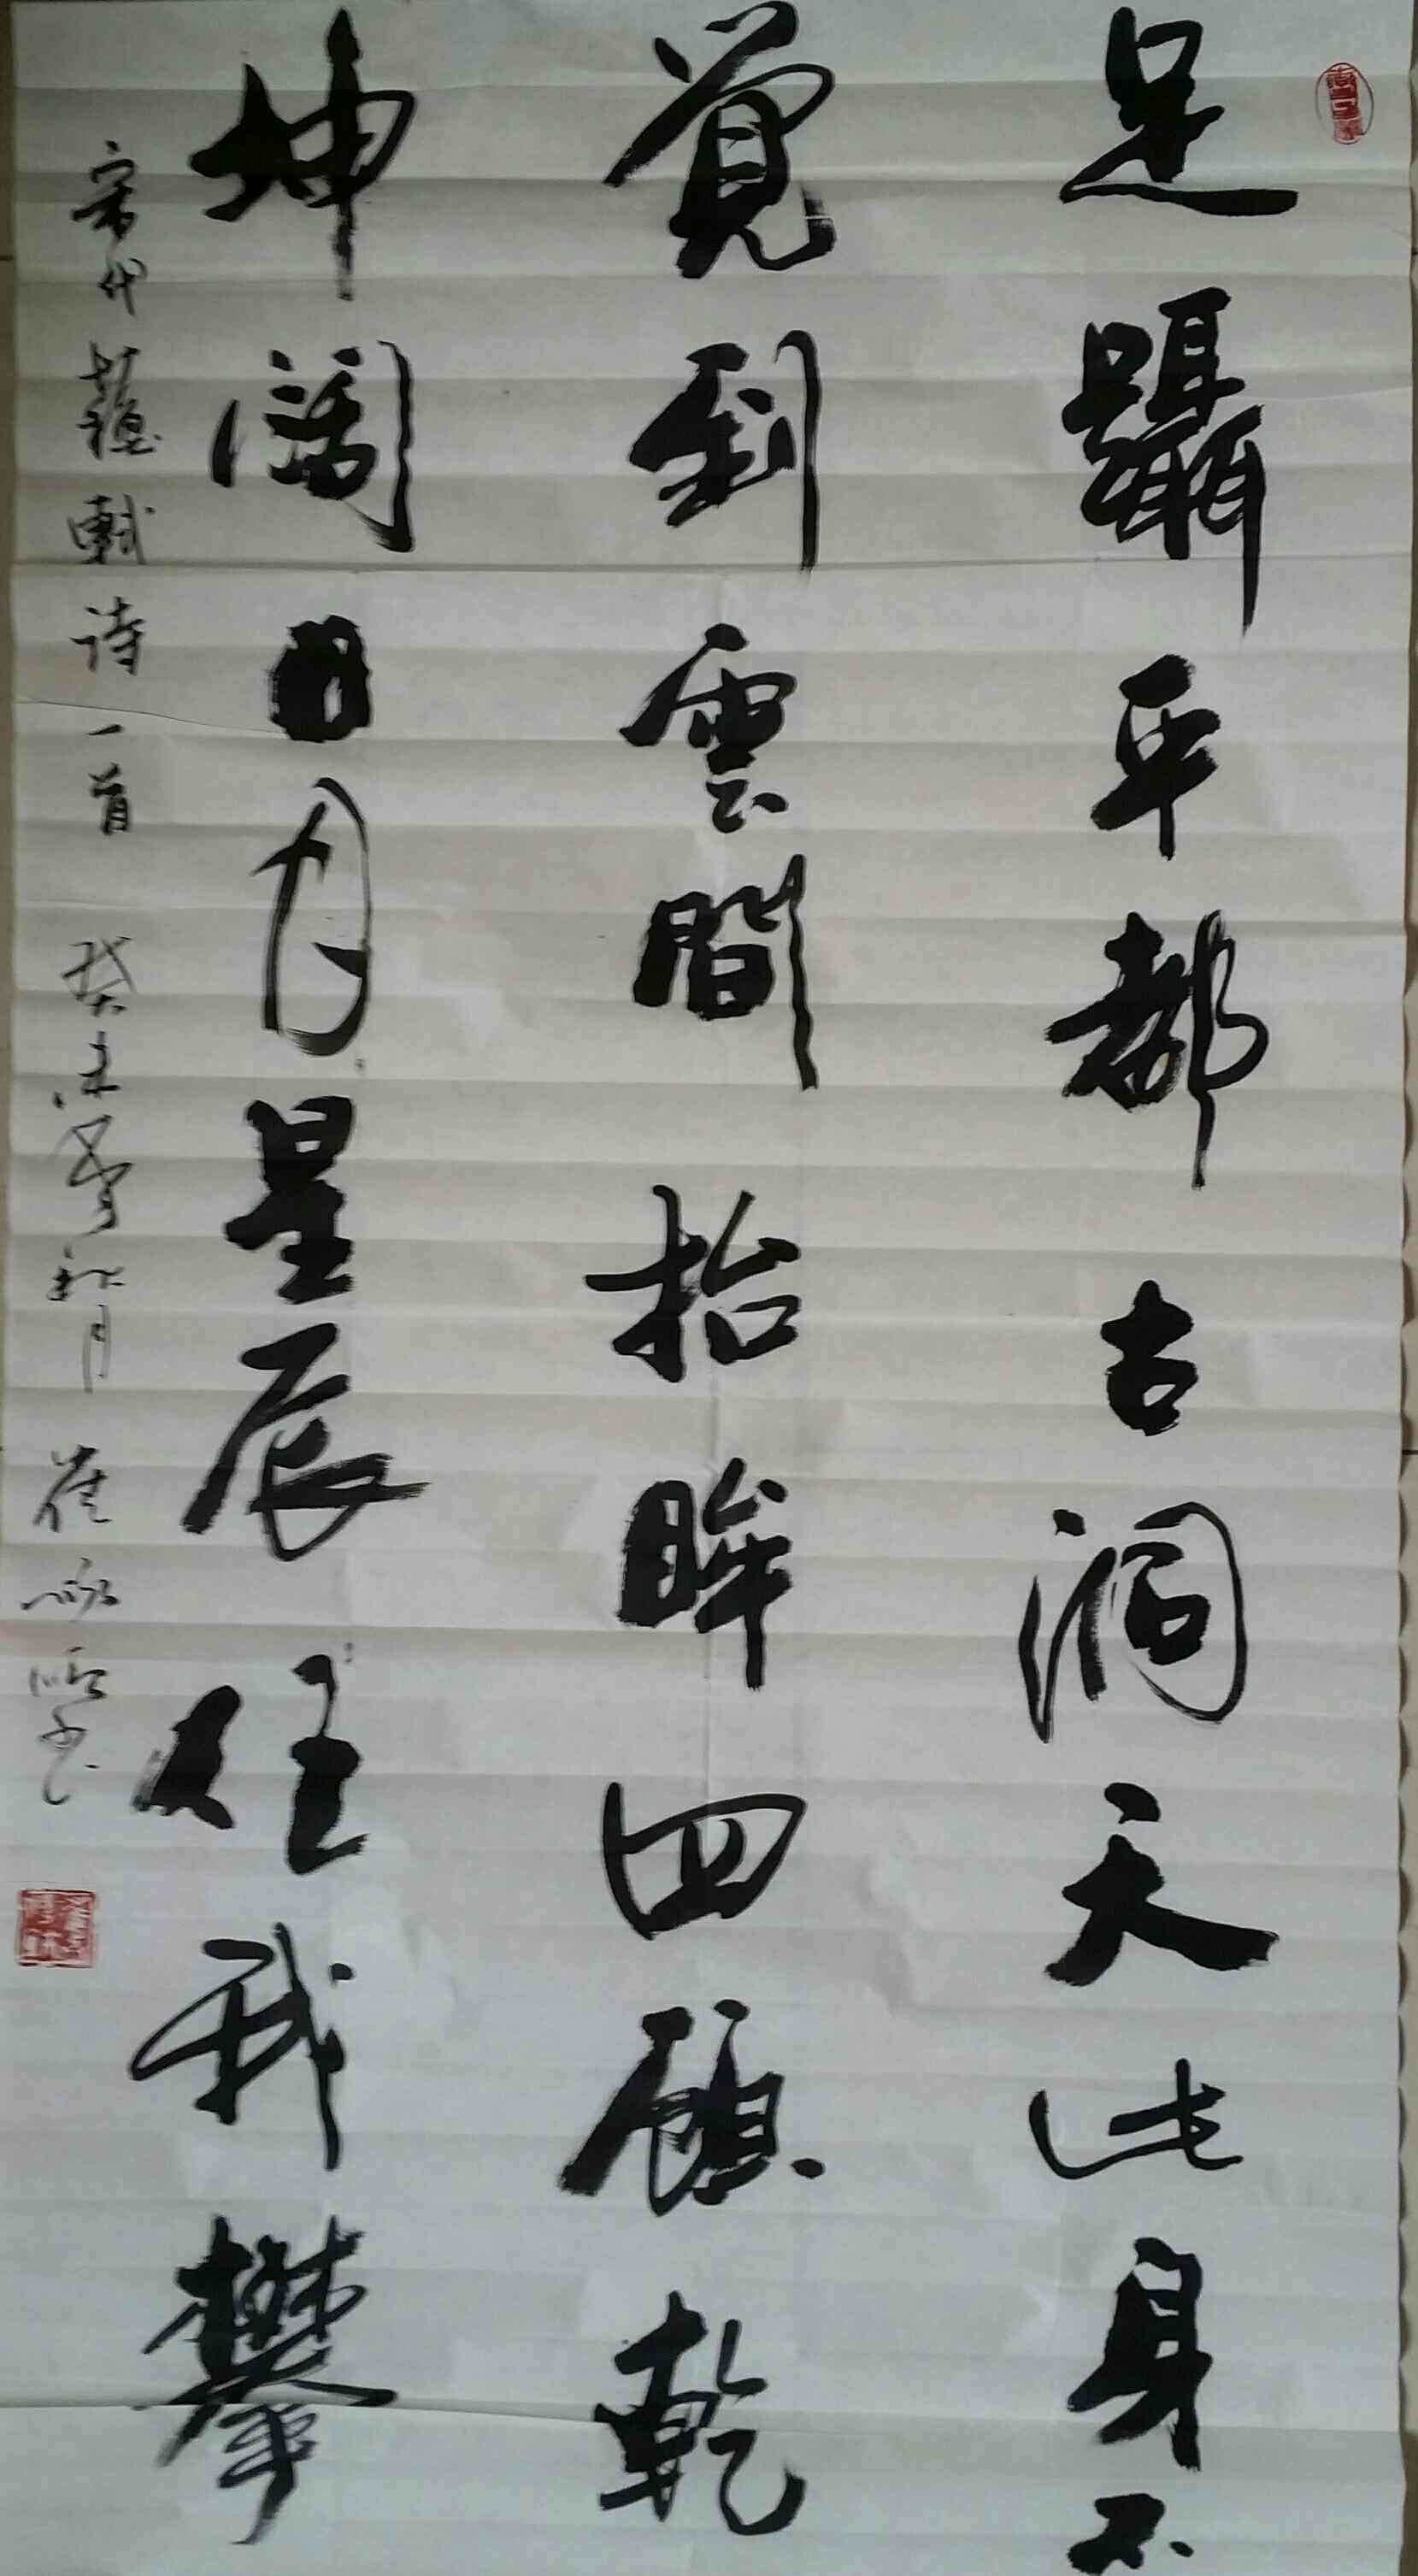 足躡平都古洞天此身不
覚到雲間抬眸四顧乾
坤闊日月星辰任我攀
宋代蘇軾诗一首 癸未季秋月 崔咏